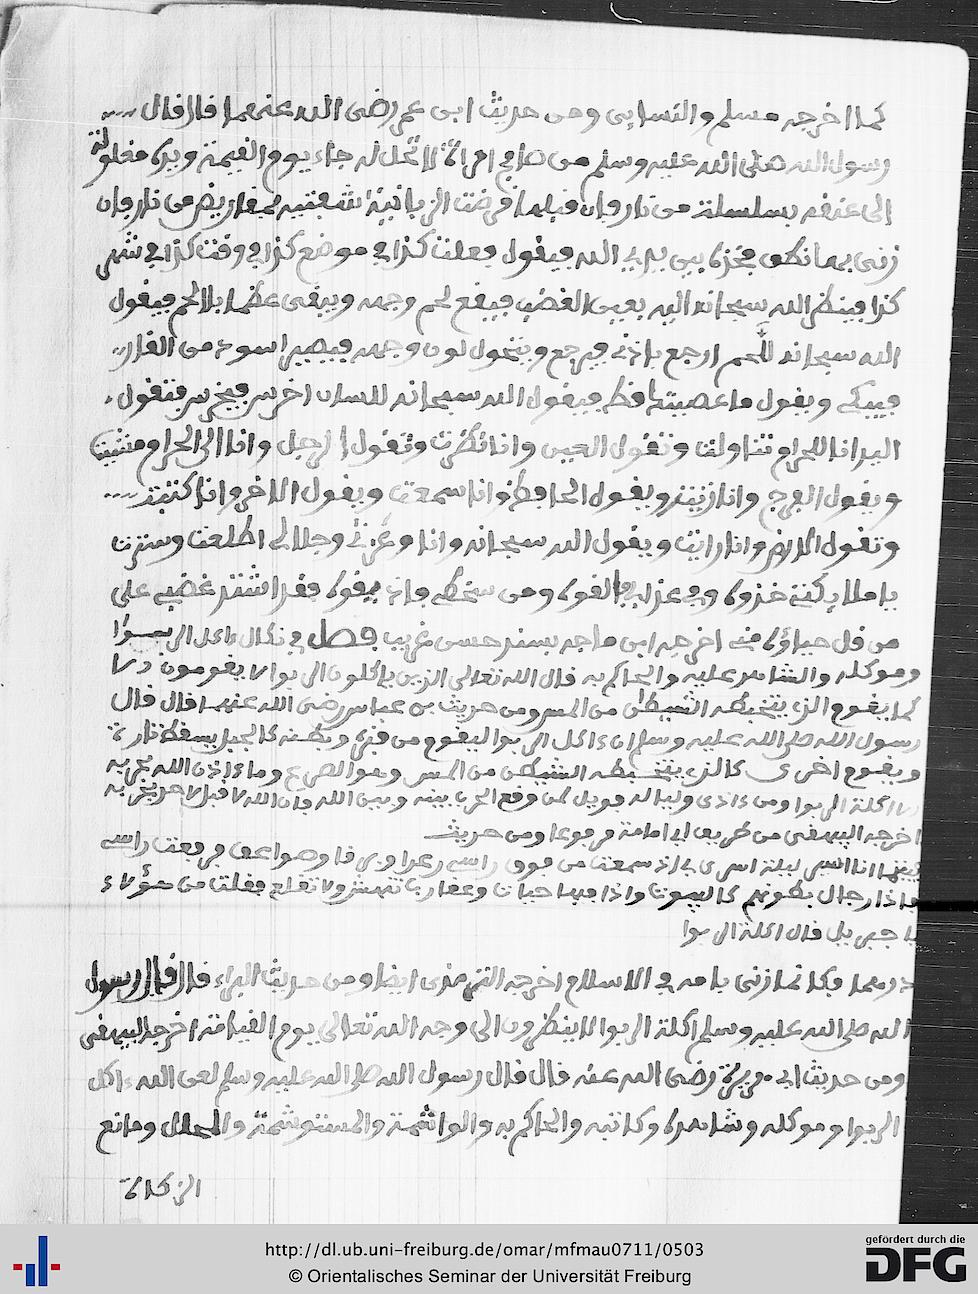 كما اخرجه مسلم والنسائي ومن حديث ابن عمر رضي الله عنهما قال قال
رسول الله صلى الله عليه وسلم من صافح امراة لا تحل له جاء يوم القيمة ويده مغلولة
الى عنقه بسلسلة من نار فان قبلها قرضت الزبانية شفتيه بمقاريض من نار فان
زنى بها نطق فخذه بين يدي الله فيقول فعلت كذا في موضع كذا في وقت كذا في شهر
كذا فينظر الله سبحانه اليه بعين الغضب فيقع لحم وجهه ويبقى عظما بلا لحم فيقول
الله سبحانه للحم ارجع باذني فيرجع ويتحول لون وجهه فيصير اسود من القار
فيبكي ويقول ما عصيتك قط فيقول الله سبحانه للسان اخرس فيخرس فتقول
اليد انا للحرام تناولت وتقول العين وانا نظرت وتقول الرجل وانا الى الحرام مشيت
ويقول الفرج وانا زنيت ويقول الحافظ وانا سمعت ويقول الاخر وانا كتبت
وتقول الارض وانا رايت ويقول الله سبحانه وانا وعزتي وجلالي اطلعت وسترت
يا ملايكتي خذوه وفي عذابي القوه ومن سخطي فاذيقوه فقد اشتد غضبي على
من قل حياؤه مني اخرجه ابن ماجه بسند حسن غريب فصل في نكال ءاكل الربوا
وموكله والشاهد عليه والحاكم به قال الله تعالى الذين ياكلون الربوا لا يقومون الا
كما يقوم الذي يتخبطه الشيطن من المس ومن حديث بن عباس رضي الله عنهما قال قال
رسول الله صلى الله عليه وسلم ان ءاكل الربوا ليقوم من قبره وبطنه كالجبل يسقط تارة
ويقوم اخرى كالذي يتخبطه الشيطن من المس وهو الصرع وما ءاذن الله بحربه
الا اكلة الربوا ومن ءاذى وليا له فويل لمن وقع الحرب بينه وبين الله فان الله لا قبل لاحد بحربه
اخرجه البيهقي من طريق ابي امامة مرفوعا ومن حديث
بينما انا اسير ليلة اسري بي اذ سمعت من فوق راسي رعدا وبرقا وصواعق فرفعت راسي
فاذا رجال بطونهم كالبيوت واذا فيها حيات وعقارب فقلت من هؤلاء
يا جبريل قال اكلة الربوا
درهما فكانما زنى بامه في الاسلام اخرجه الترمذي ايضا ومن حديث البراء قال قال رسول
الله صلى الله عليه وسلم اكلة الربوا لا ينظرون الى وجه الله تعالى يوم القيامة اخرجه البيهقي
ومن حديث ابي هريرة رضي الله عنه قال قال رسول الله صلى الله عليه وسلم لعن الله ءاكل
الربوا وموكله وشاهده وكاتبه والحاكم به والواشمة والمستوشمة والمحلل ومانع
الزكاة
http://dl.ub.uni-freiburg.de/omar/mfmau0711/0503
© Orientalisches Seminar der Universität Freiburg
gefördert durch die
DFG